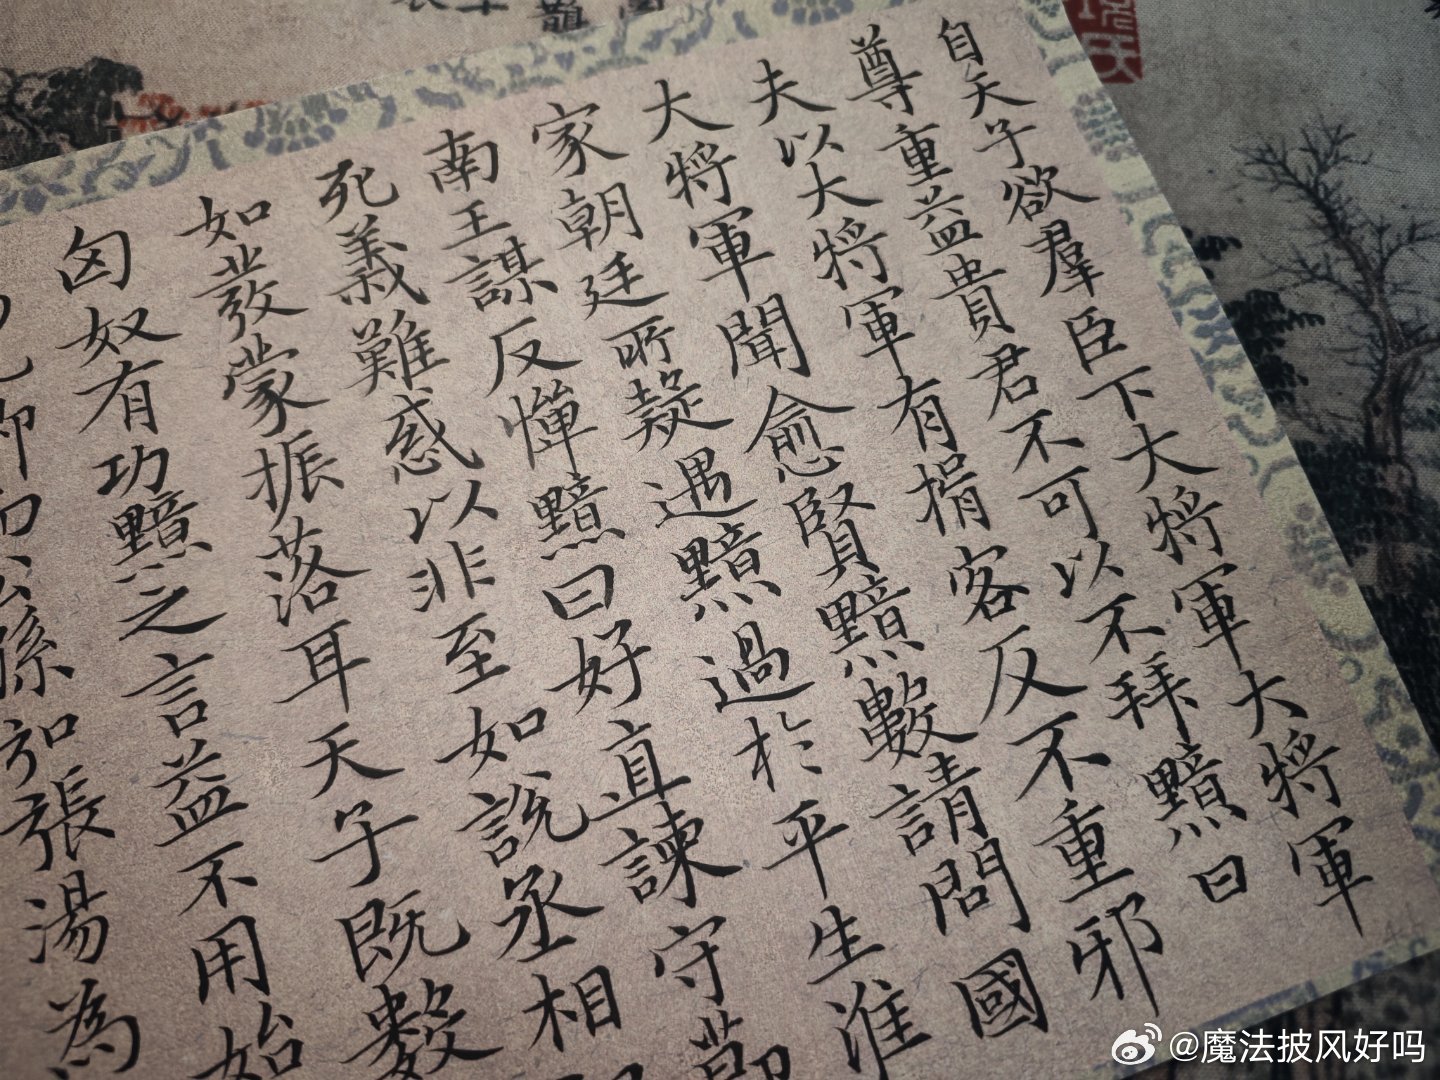 自天子欲羣臣下大將軍大將軍
尊重益貴君不可以不拜黯曰
夫以大將軍有揖客反不重邪
大將軍聞愈賢黯數請問國
家朝廷所疑遇黯過於平生淮
南王謀反憚黯曰好直諫守節
死義難惑以非至如說丞相
如發蒙振落耳天子既數
匈奴有功黯之言益不用始
九卿而公孫弘張湯為
@魔法披风好吗